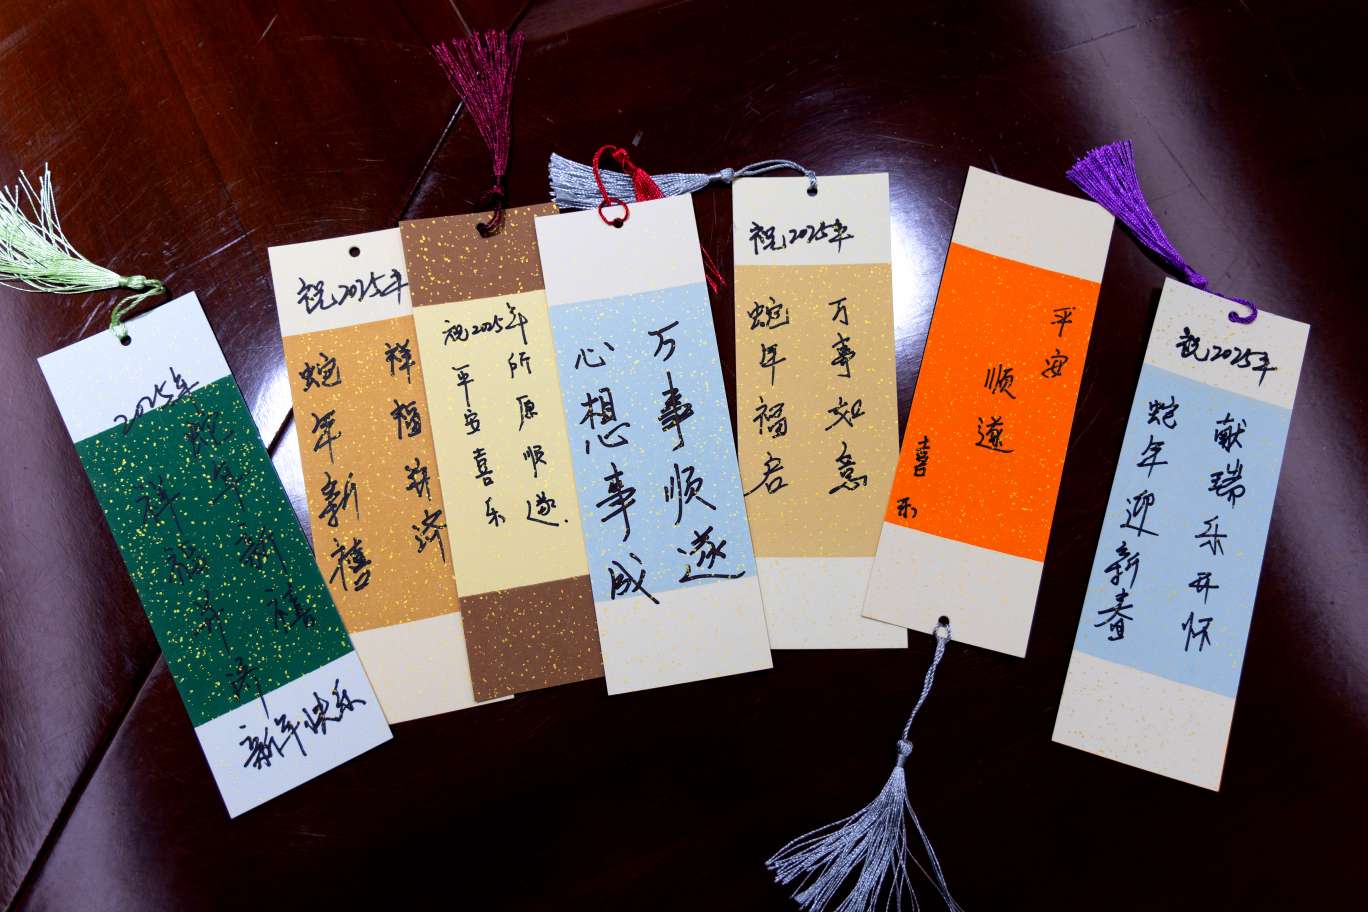 2025年
蛇年新禧
祥福并济
新年快乐
祝2025年
祥福并济
蛇年新禧
祝2025年
所愿顺遂.
平安喜乐
万事顺遂
心想事成
祝2025年
万事如意
蛇年福启
平安
顺遂
喜乐
祝2025年
献瑞乐开怀
蛇年迎新春